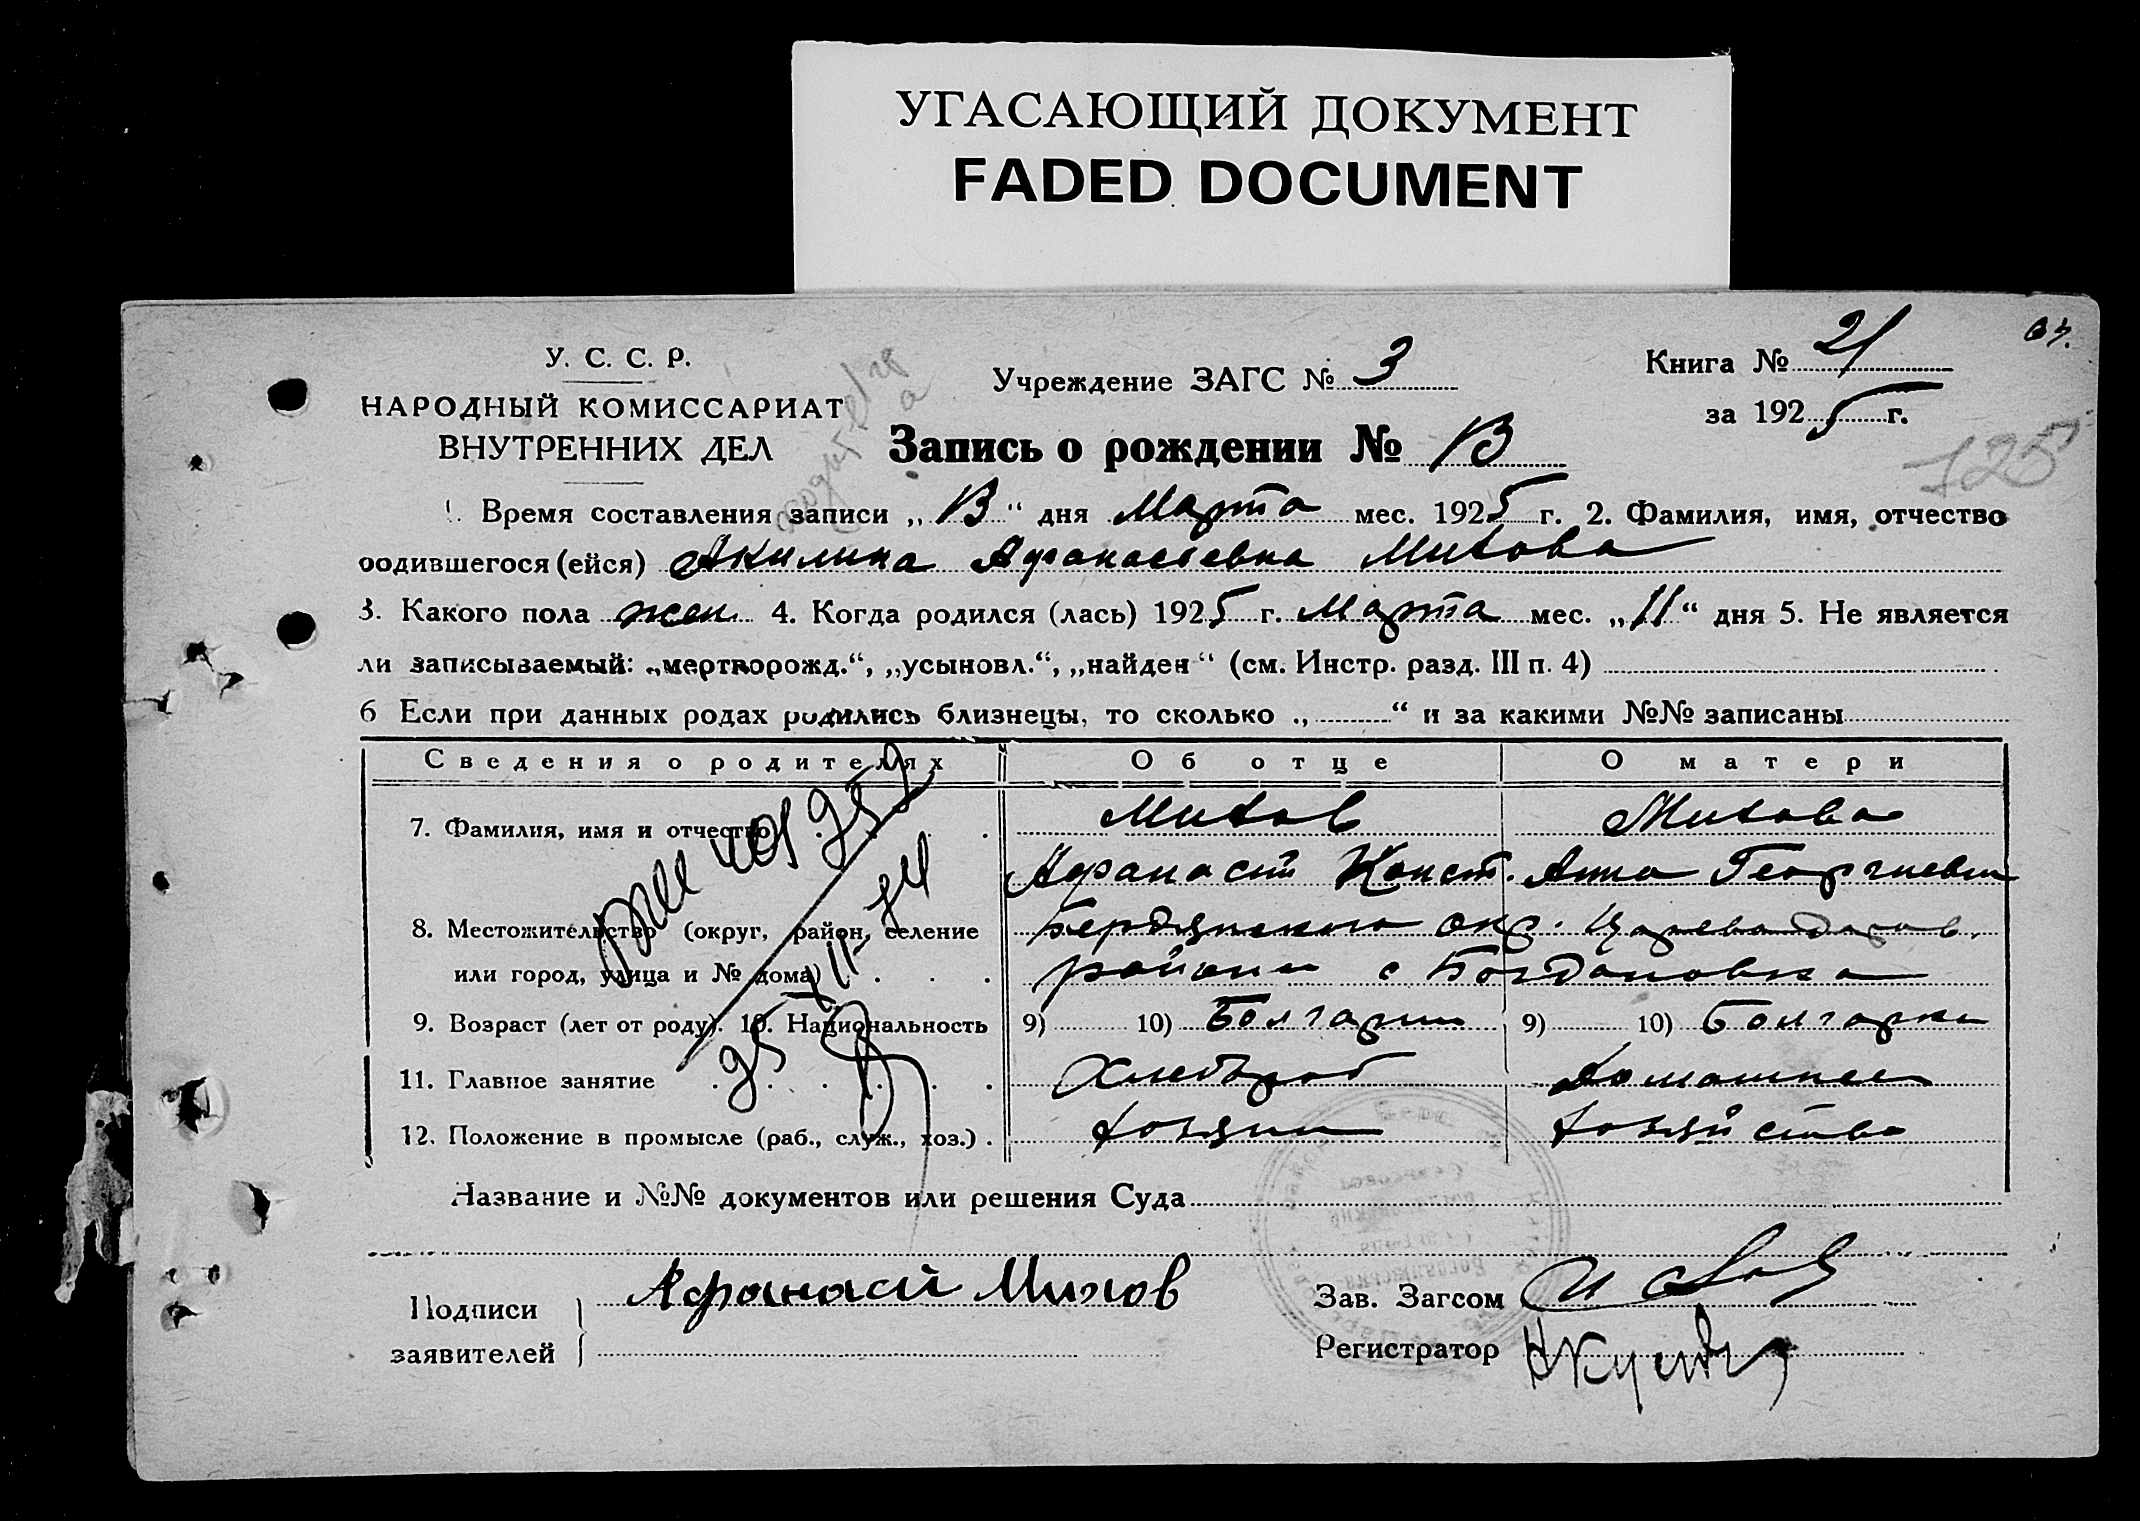 УГАСАЮЩИЙ ДОКУМЕНТ
FADED DOCUMENT
У. С. С. Р.
НАРОДНЫЙ КОМИССАРИАТ
ВНУТРЕННИХ ДЕЛ
Учреждение ЗАГС № 3
Книга № 21
за 1925 г.
125
Запись о рождении № 13
1. Время составления записи „13“ дня Марта мес. 1925 г. 2. Фамилия, имя, отчество
родившегося (ейся) Акилина Афанасьевна Михова
3. Какого пола жен. 4. Когда родился (лась) 1925 г. Марта мес. „11“ дня 5. Не является
ли записываемый: „мертворожд.“, „усыновл.“, „найден“ (см. Инстр. разд. III п. 4)
6 Если при данных родах родились близнецы, то сколько „ “ и за какими №№ записаны
Сведения о родителях Об отце О матери
7. Фамилия, имя и отчество Михов Михова
Афанасий Конст. Анна Георгиевн
8. Местожительство (округ, район, селение Бердянского окр. Цареводаров.
или город, улица и № дома) района с Богдановка
9. Возраст (лет от роду). 10. Национальность 9) 10) Болгарин 9) 10) Болгарка
11. Главное занятие Хлебороб Домашнее
12. Положение в промысле (раб., служ., хоз.) хозяин хозяйство
Название и №№ документов или решения Суда
Подписи
заявителей
Афанасий Михов
Зав. Загсом
Регистратор